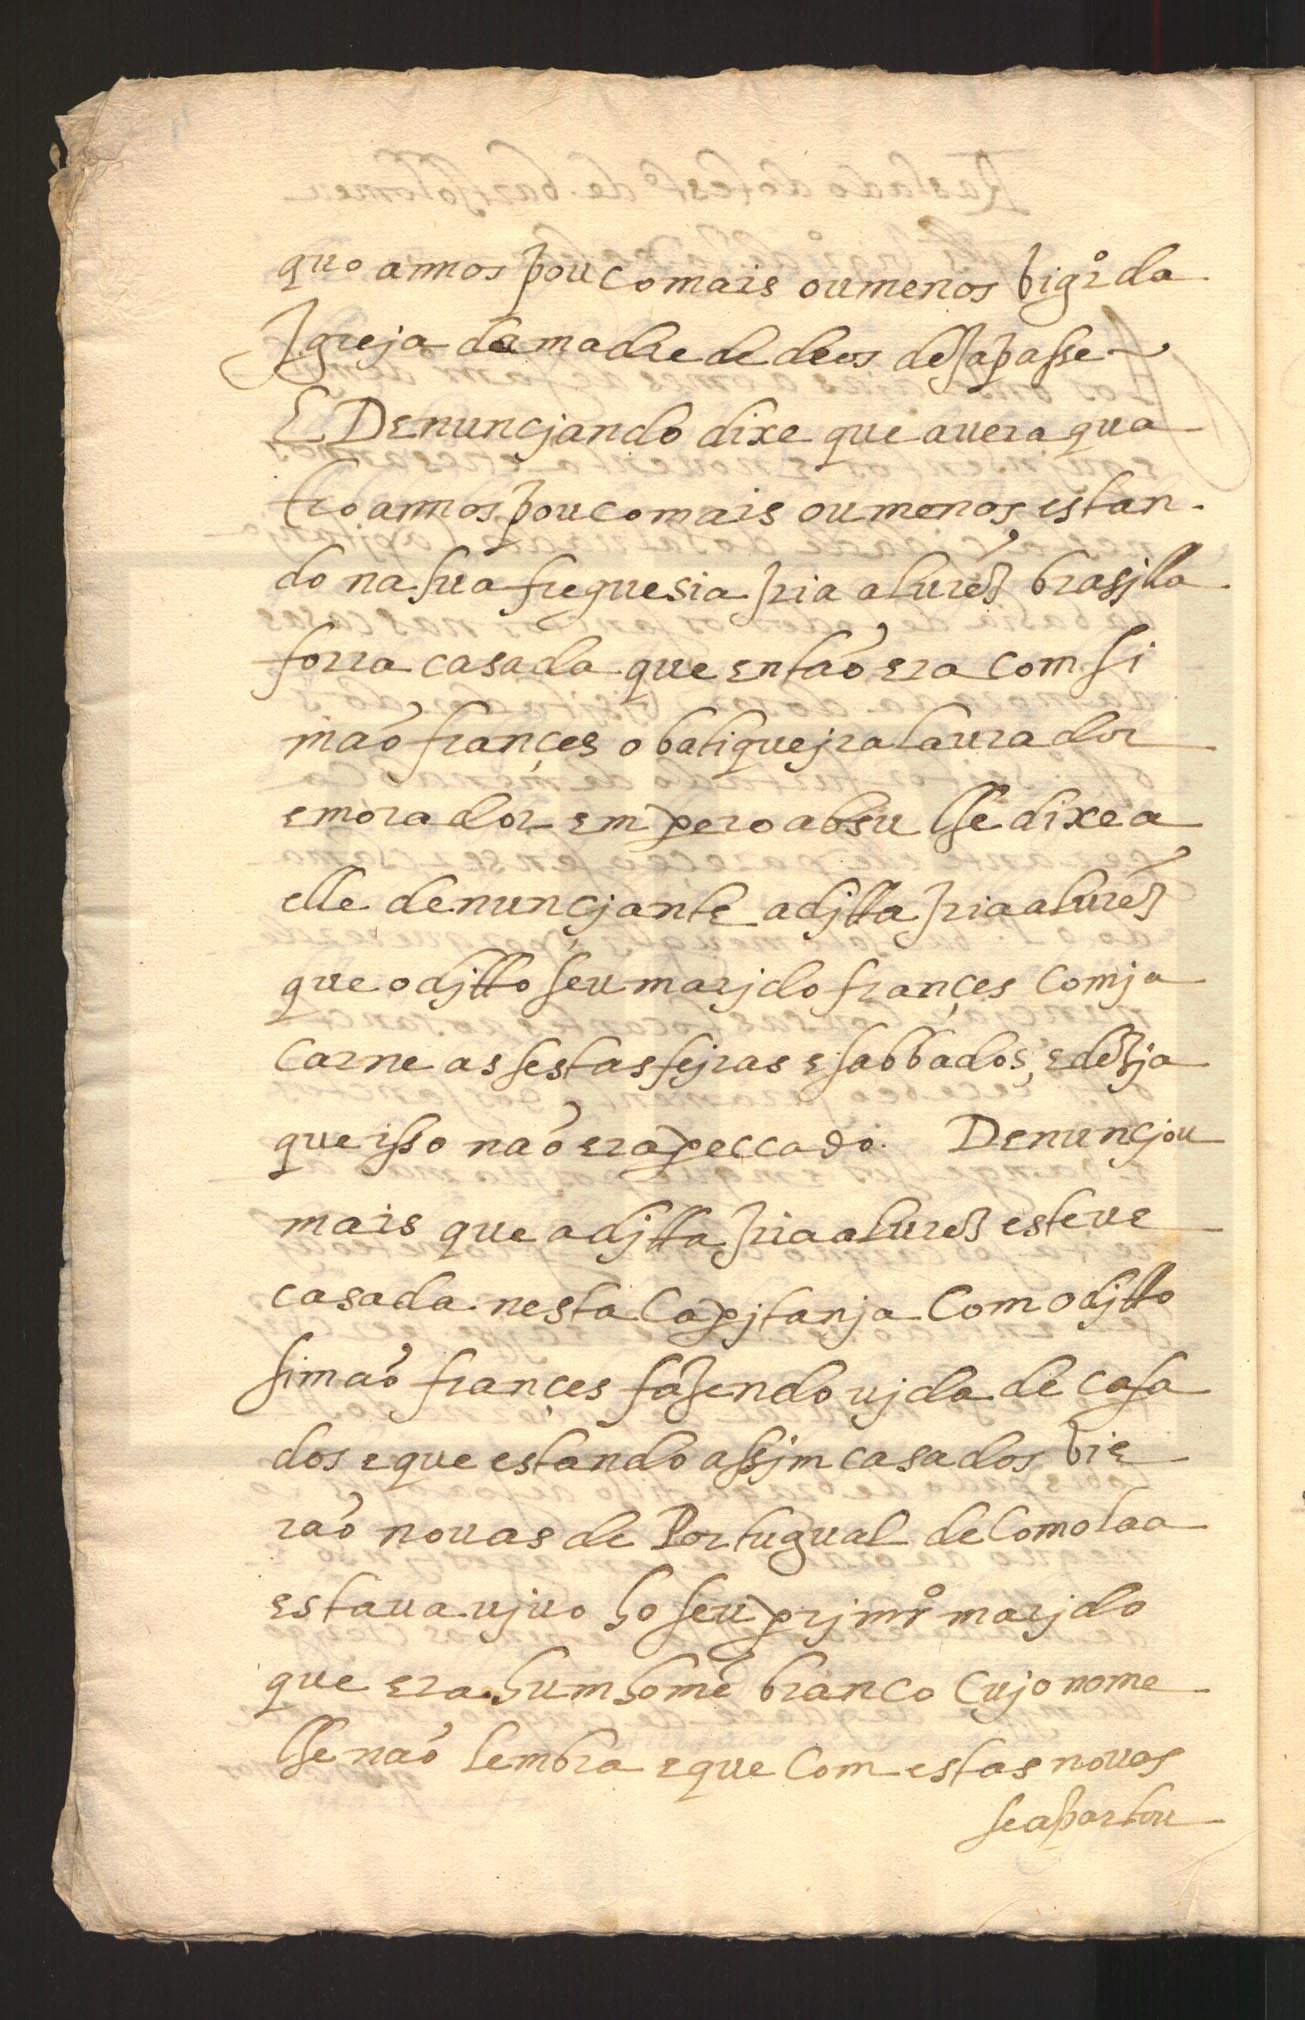 quo annos pouco mais ou menos vigro da
Igreja da madre de deos de Japasse
E Denuncjando dixe que avera qua
tro annos pouco mais ou menos estan
do na sua freguesia Jria alurez brasjlla
forra casada que então era com Si
mão françes o batiquejra laurador
e morador em peroabsu lhe dixe a
elle denunçjante a djtta Jria alurez
que o djtto seu marjdo françes comja
carne as sestas fejras e sabbados, e dezja
que isso não era peccado. Denuncjou
mais que a djtta Jria alurez esteve
casada nesta Capjtanja Com o djtto
simão françes fazendo vjda de casa
dos e que estando assjm casados vie
rão nouas de Portugual de Como laa
estaua vjuo ho seu prjmro marjdo
que era hum homẽ branco Cujo nome
lhe não lembra e que Com estas nouas
se apartou